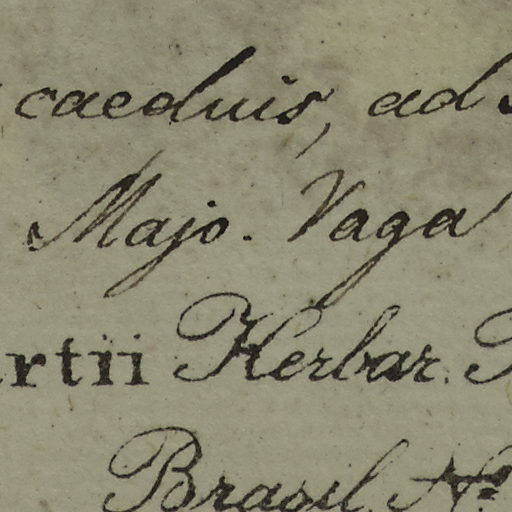 caeduis, ad
Majo. Vaga
rtii Herbar.
Brasil. No.